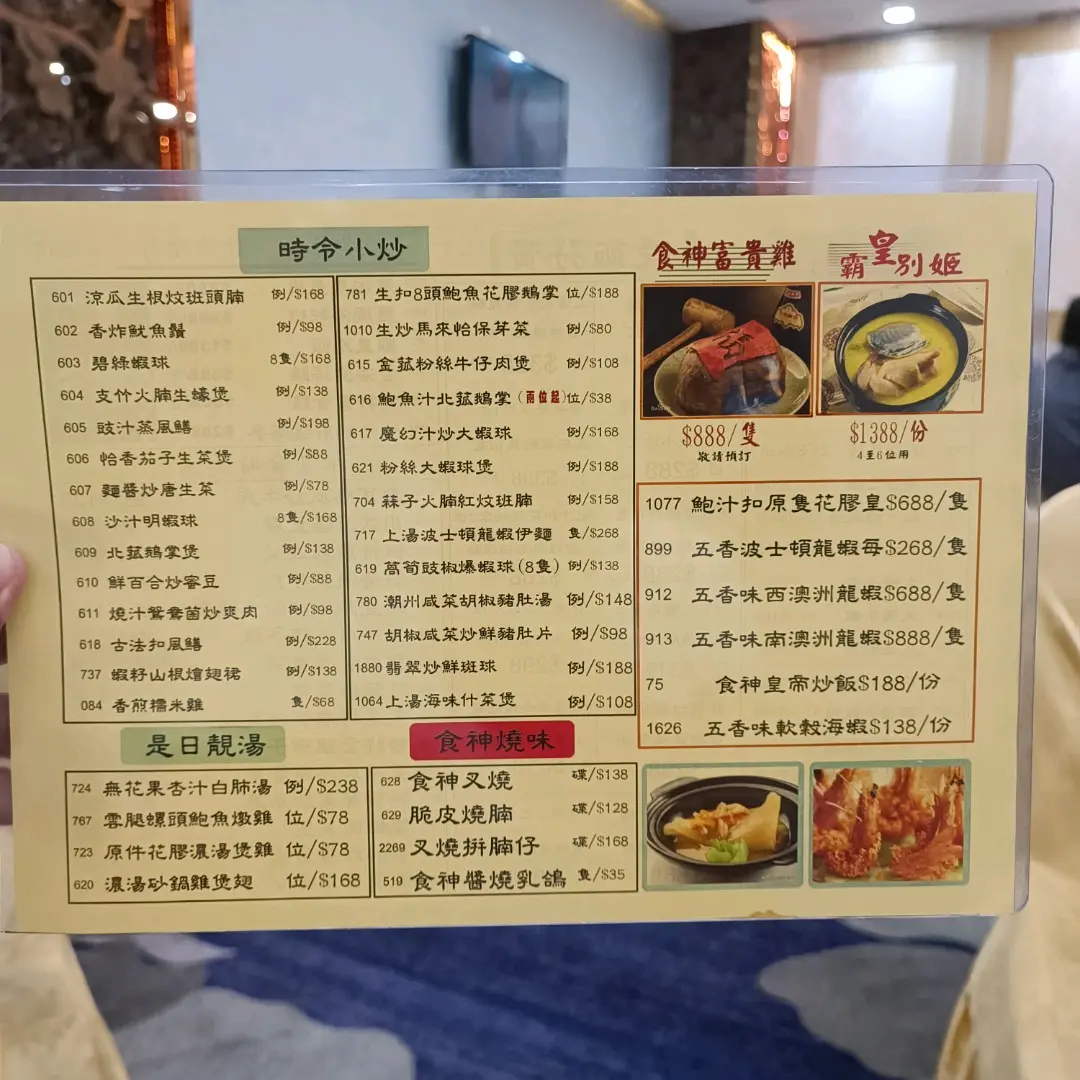 時令小炒
601 涼瓜生根炆班頭腩 例/$168
602 香炸魷魚鬚 例/$98
603 碧綠蝦球 8隻/$168
604 支竹火腩生蠔煲 例/$138
605 豉汁蒸風鱔 例/$198
606 怡香茄子生菜煲 例/$88
607 麵醬炒唐生菜 例/$78
608 沙汁明蝦球 8隻/$168
609 北菰鵝掌煲 例/$138
610 鮮百合炒蜜豆 例/$88
611 燒汁鴛鴦菌炒爽肉 例/$98
618 古法扣風鱔 例/$228
737 蝦籽山根燴翅裙 例/$138
084 香煎糯米雞 隻/$68
781 生扣8頭鮑魚花膠鵝掌 位/$188
1010 生炒馬來怡保芽菜 例/$80
615 金菰粉絲牛仔肉煲 例/$108
616 鮑魚汁北菰鵝掌(兩位起) 位/$38
617 魔幻汁炒大蝦球 例/$168
621 粉絲大蝦球煲 例/$188
704 蒜子火腩紅炆班腩 例/$158
717 上湯波士頓龍蝦伊麵 隻/$268
619 萵筍豉椒爆蝦球(8隻) 例/$138
780 潮州咸菜胡椒豬肚湯 例/$148
747 胡椒咸菜炒鮮豬肚片 例/$98
1880 翡翠炒鮮斑球 例/$188
1064 上湯海味什菜煲 例/$108
食神富貴雞
$888/隻
敬請預訂
霸皇別姬
$1388/份
4至6位用
1077 鮑汁扣原隻花膠皇$688/隻
899 五香波士頓龍蝦每$268/隻
912 五香味西澳洲龍蝦$688/隻
913 五香味南澳洲龍蝦$888/隻
75 食神皇帝炒飯$188/份
1626 五香味軟殼海蝦$138/份
是日靚湯
724 無花果杏汁白肺湯 例/$238
767 雲腿螺頭鮑魚燉雞 位/$78
723 原件花膠濃湯煲雞 位/$78
620 濃湯砂鍋雞煲翅 位/$168
食神燒味
628 食神叉燒 碟/$138
629 脆皮燒腩 碟/$128
2269 叉燒拼腩仔 碟/$168
519 食神醬燒乳鴿 隻/$35